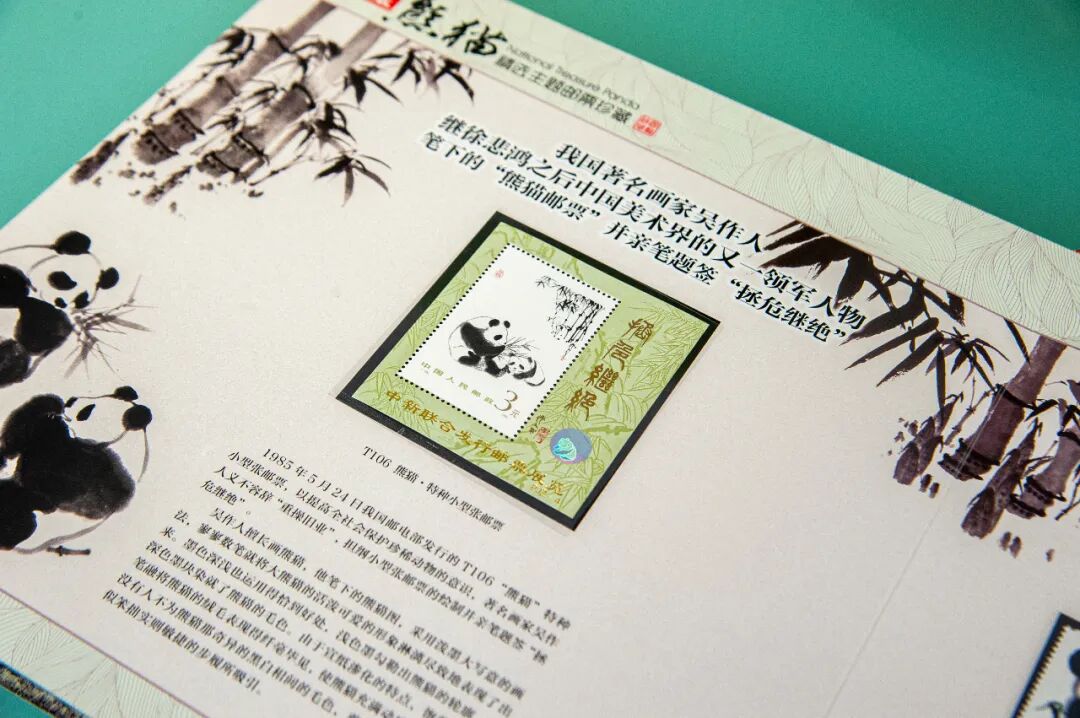 熊猫
National Treasure Panda
精选主题邮票珍藏
我国著名画家吴作人
继徐悲鸿之后中国美术界的又一领军人物
笔下的“熊猫邮票”并亲笔题签“拯危继绝”
拯危继绝
中国人民邮政
3元
中新联合发行邮票展览
T106 熊猫·特种小型张邮票
1985年5月24日我国邮电部发行的T106“熊猫”特种
小型张邮票，以提高全社会保护珍稀动物的意识，著名画家吴作
人义不容辞“重操旧业”，担纲小型张邮票的绘制并亲笔题签“拯
危继绝”。
吴作人擅长画熊猫，他笔下的熊猫图，采用泼墨大写意的画
法，寥寥数笔就将大熊猫的活泼可爱的形象淋漓尽致地表现了出
来。墨色深浅也运用得恰到好处，浅色墨勾勒出熊猫的轮廓
深色墨块染就了熊猫的毛色。由于宣纸渗化的特点，
笔融将熊猫的绒毛表现得纤毫毕见，使熊猫充满动
没有人不为熊猫那奇异的黑白相间的毛色，
似笨拙实则敏捷的步履所吸引。